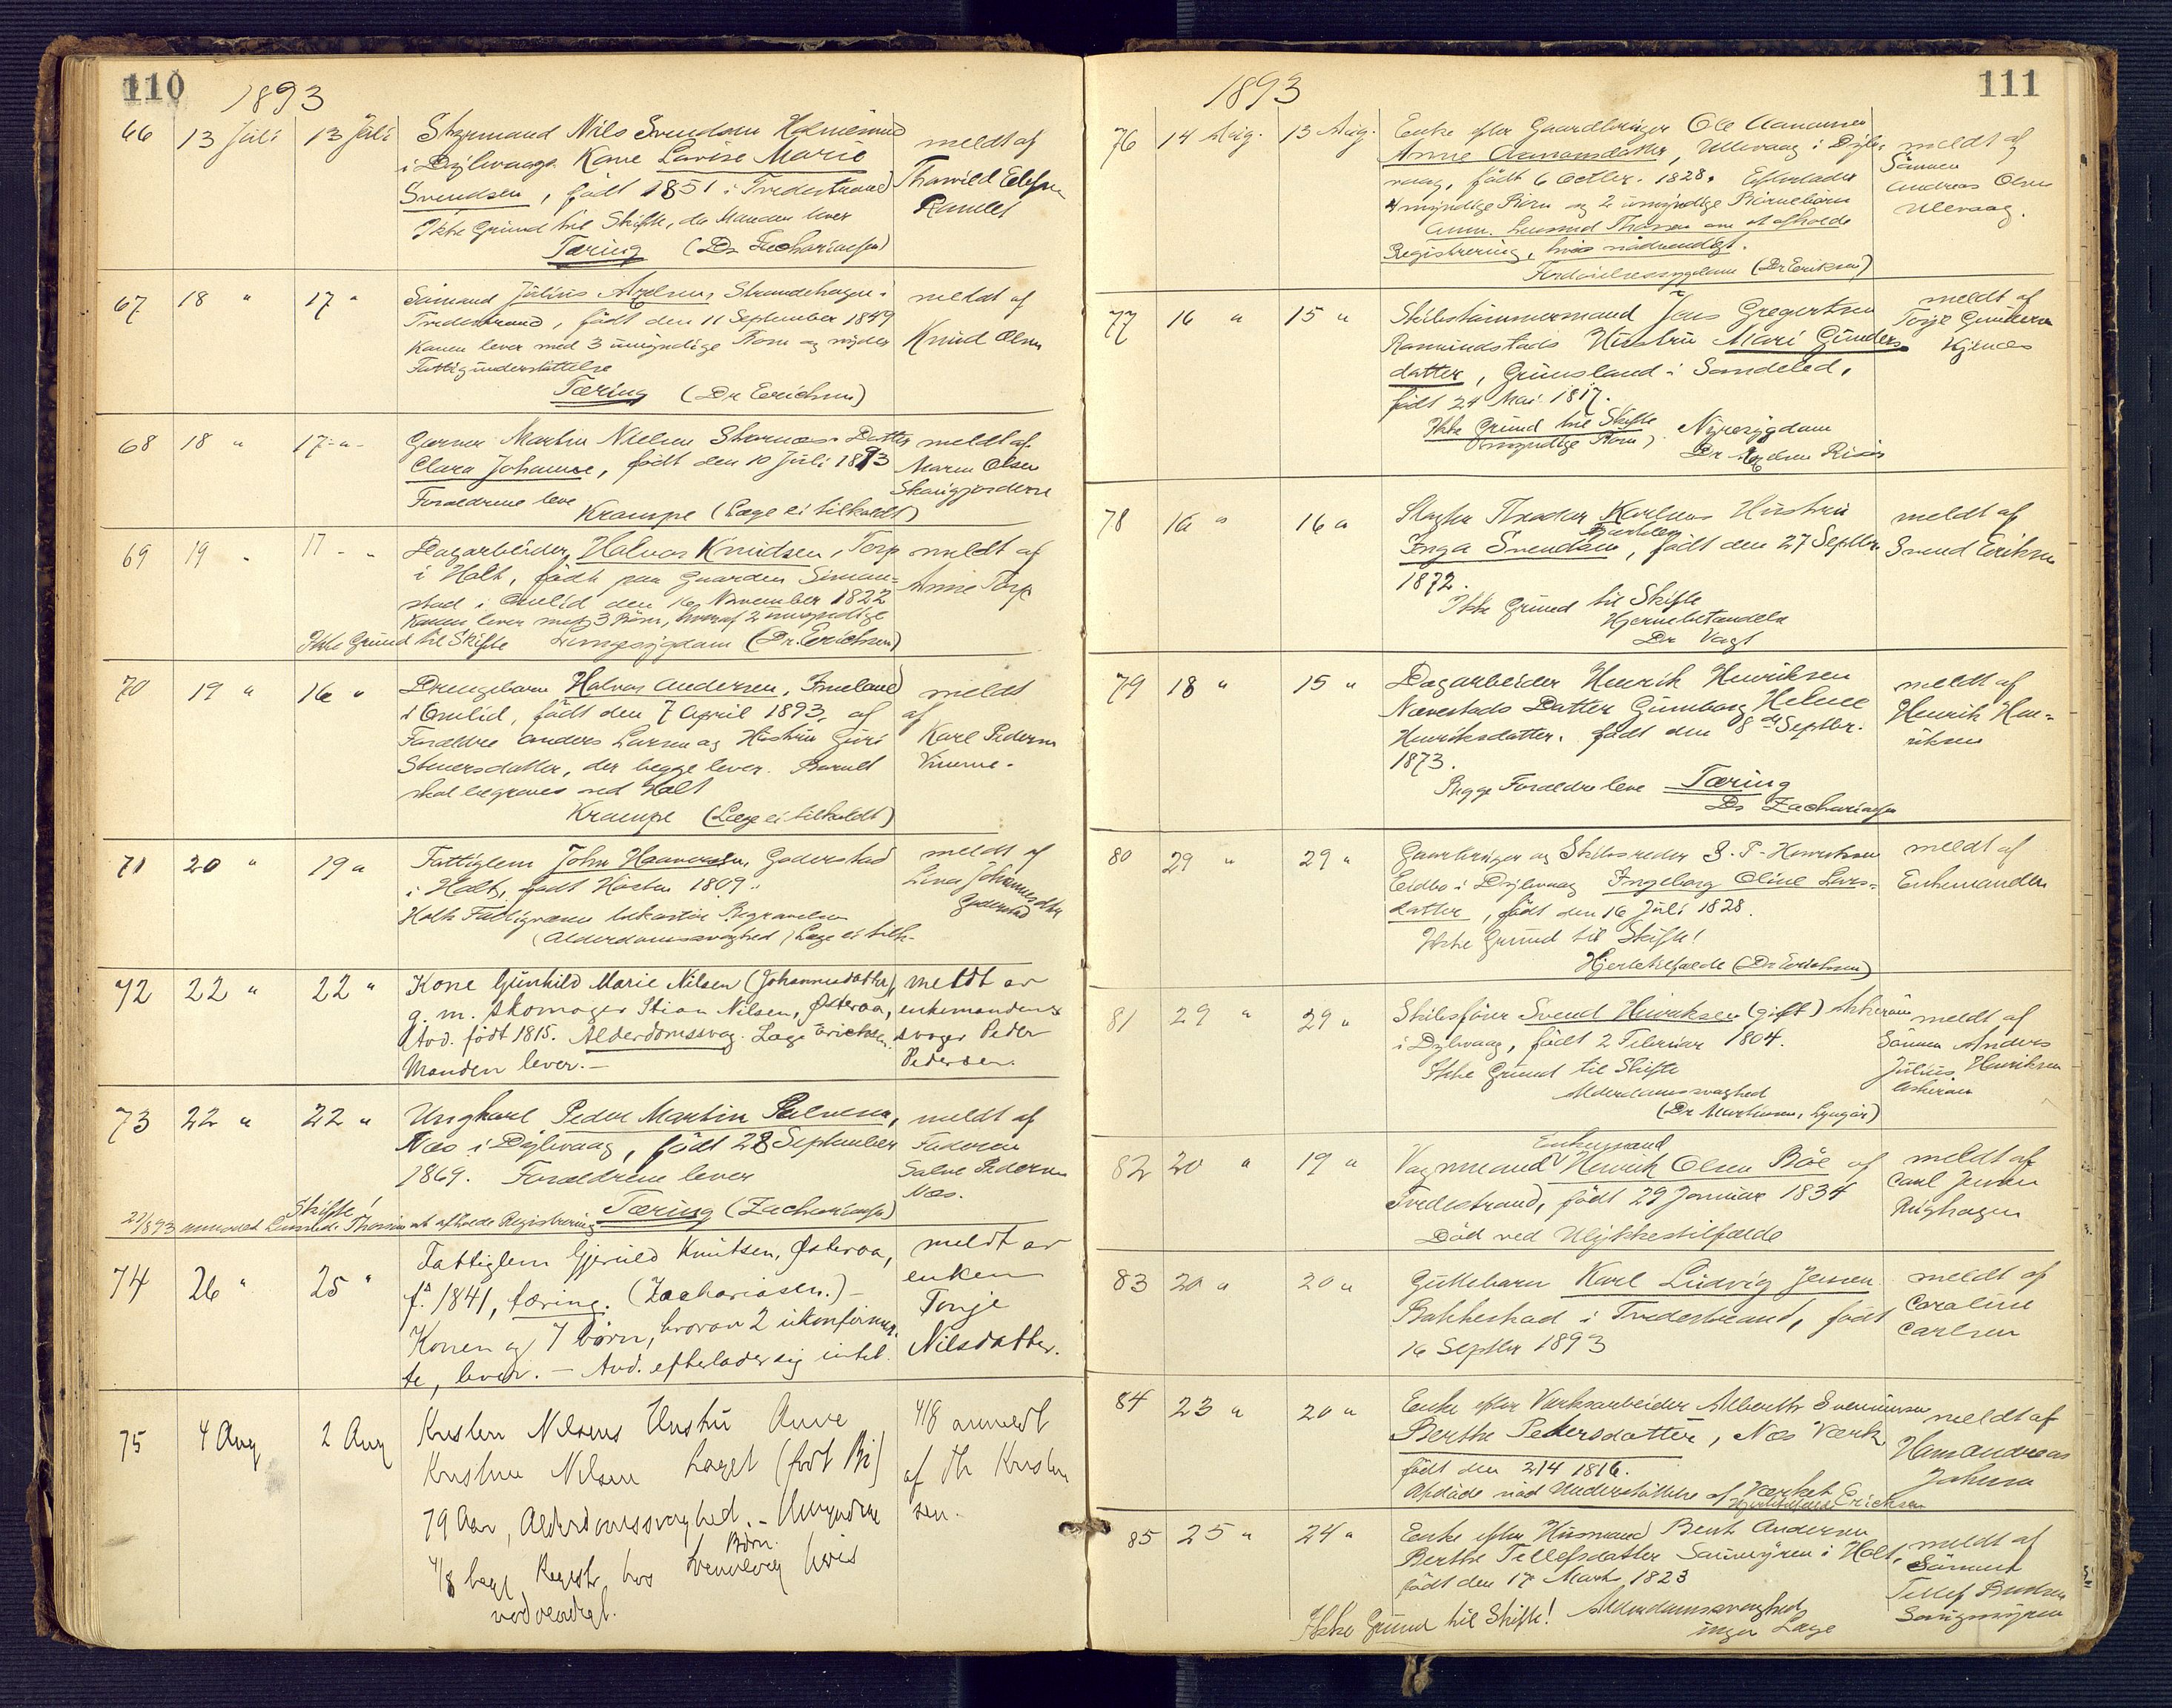 110
1893
66 13 Juli 13 Juli Styrmand Nils Svendsen Holmesund meldt af
i Dybvaag Kone Lovise Marie Thorvild Ellefsen
Svendsen, født 1851 i Tvedestrand
Ikke Grund til Skifte, da Manden lever
Tæring (Dr Zachariasen)
67 18 " 17 " Sømand Julius Axelsen, Strandehagen i meldt af
Tvedestrand, født den 11 September 1849 Knud Olsen
Konen lever med 3 umyndige Børn og nyder
Fattigunderstøttelse
Tæring (Dr Erichsen)
68 18 " 17 - " - Martin Nielsen Datter meldt af
Clara Johanne, født den 10 Juli 1893 Maren Olsen
Forældrene leve
Krampe (Læge ei tilkaldt)
69 19 " 17 - " Dagarbeider Halvor Knudsen, Torp meldt af
i Holt, født paa Gaarden Simon= Anne Torp
stad i Omlid den 16 November 1822
Konen lever med 3 Børn, hvoraf 2 umyndige
Ikke Grund til Skifte Lungesygdom (Dr. Erichsen)
70 19 " 16 " Drengebarn Halvor Andersen, meldt
i Omlid, født den 7 April 1893, af af
Forældre Anders Larsen og Hustru Guri Karl Pedersen
datter, der begge lever. Barnet
skal begraves ved Holt
Krampe (Læge ei tilkaldt)
71 20 " 19 " Fattiglem John Goderstad meldt af
i Holt, født Høsten 1809. Lina Johannesdtr
Holts Fattigvæsen bekoster Begravelsen Goderstad
(Alderdomssvaghed) Læge ei tilk.
72 22 " 22 " Kone Gunhild Marie Nilsen (Johannesdatter), meldt av
g. m. skomager Stian Nilsen, Østeraa, enkemandens
Avd. født 1815. Alderdomssvag. Læge Erichsen. svoger Peder
Manden lever. — Pedersen.
73 22 " 22 " Ungkarl Peder Martin Salvesen, meldt af
Næs i Dybvaag, født 28 September Faderen
1869. Forældrene lever Salve Pedersen
Næs.
Skifte!
Tæring (Zachariasen)
22/8 93 anmodet Lensmd. Thorsen at afholde Registrering
74 26 " 25 " Fattiglem Gjeruld Knutsen, Østeraa, meldt av
f. 1841, tæring. (Zachariasen.) — enken
Konen og 7 børn, hvorav 2 ukonfirmer- Tonje
te, lever. — Avd. efterlader sig intet. Nilsdatter.
75 4 Aug 2 Aug Kristen Nilsens Hustru Anne 4/8 anmeldt
Kristine Nilsen Laget (født Bi) af Th Kristen
79 Aar, Alderdomssvaghed. — Umyndige sen.
Børn.
4/8 Registr hos hvis
nødvendigt.
111
1893
76 14 Aug. 13 Aug. Enke efter Gaardbruger Ole Aanonsen meldt af
Anne Aanonsdatter, Ulevaag i Dyb- Sønnen
vaag, født 6 Octbr. 1828. Efterlader Andreas Olsen
4 myndige Børn og 2 umyndige Børnebørn Ulevaag.
Anm. Lensmd Thorsen om at afholde
Registrering, hvis nødvendigt.
Fordøielsessygdom (Dr Eriksen)
77 16 " 15 " Skibstømmermand Jens Gregertsen meldt af
Hustru Mari Gunders- Torje Gundersen
datter, Grunsland i Søndeled, Kjenes
født 24 Mai 1817.
Ikke Grund til Skifte Nyresygdom
(umyndige Børn)
Dr Risør
78 16 " 16 " Slagter Karlsens Hustru meldt af
Inga Svendsen, født den 27 Septbr. Svend Eriksen
1872.
Ikke Grund til Skifte
Hjernebetændelse
Dr Vogt
79 18 " 15 " Dagarbeider Henrik Henriksen meldt af
Næverstads Datter Gunborg Helene Henrik Hen=
Henriksdatter. født den 8de Septbr. riksen
1873.
Begge Forældre leve Tæring
Dr Zachariasen
80 29 " 29 " Gaardbruger og Skibsreder S. T. Henriksen meldt af
Eidbo i Dybvaag Ingeborg Oline Lars= Enkemanden
datter, født den 16 Juli 1828.
Ikke Grund til Skifte!
Hjertetilfælde (Dr Erichsen)
81 29 " 29 " Skibsfører Svend Henriksen (gift) Askerøen meldt af
i Dybvaag, født 2 Februar 1804. Sønnen Anders
Ikke Grund til Skifte Julius Henriksen
Alderdomssvaghed Askerøen
(Dr Martinsen, Lyngør)
82 20 " 19 " Enkemand
Vognmand Henrik Olsen Böe af meldt af
Tvedestrand, født 29 Januar 1834 Carl Jensen
Død ved Ulykkestilfælde
83 20 " 20 " Guttebarn Karl Ludvig Jensen meldt af
Bakkestad i Tvedestrand, født Caroline
16 Septbr 1893 Carlsen
84 23 " 20 " Enke efter Værksarbeider Alberth meldt af
Berthe Pedersdatter, Næs Værk Hans Andreas
født den 2/4 1816. Johnsen
Afdøde nød Understøttelse af Værket
Hjertetilfælde Ericksen
85 25 " 24 " Enke efter Husmand Bent Andersen meldt af
Berthe Tellefsdatter Saugmyren i Holt, Sønnen
født den 17 Marts 1823 Tellef Bentsen
Ikke Grund til Skifte! Alderdomssvaghed Saugmyren
ingen Læge